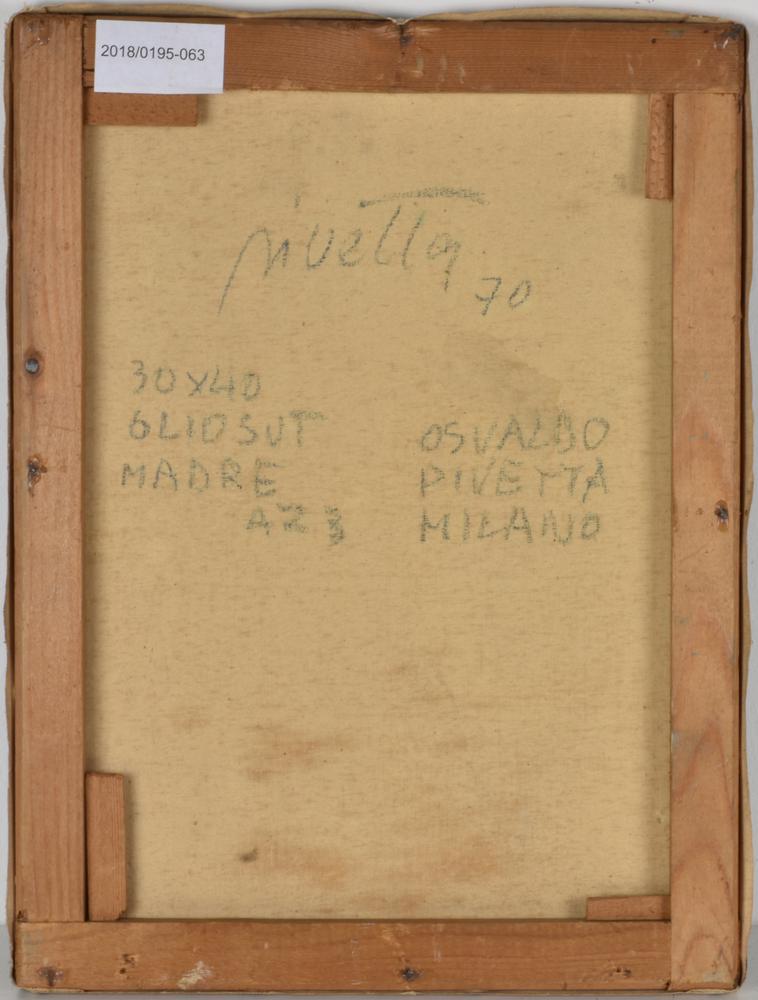 2018/0195-063
Pivetta
70
30X40
OLIO SUT
MADRE
AZ3
OSVALDO
PIVETTA
MILANO